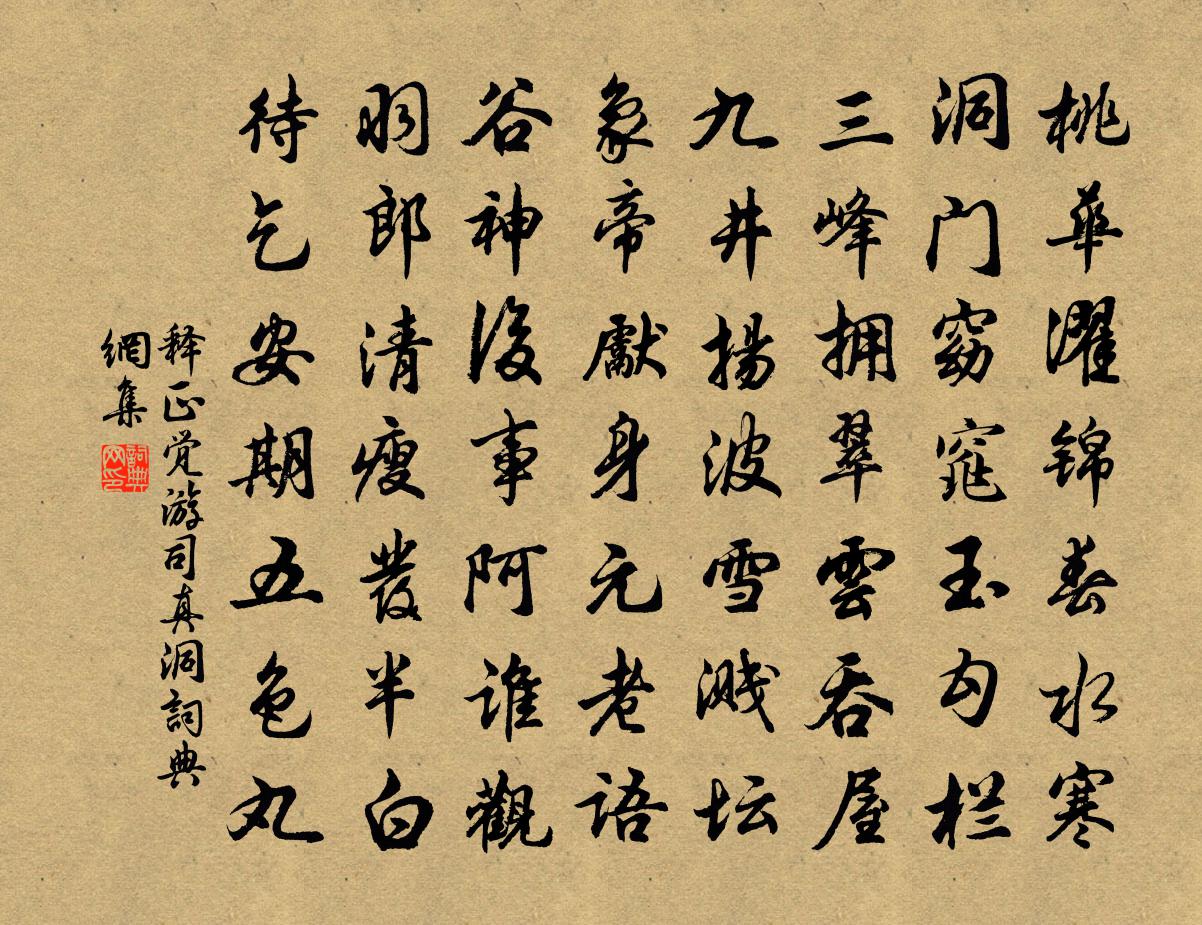 桃華濯锦春水寒
洞门窈窕玉勾栏
三峰拥翠雲吞屋
九井揚波雪溅坛
象帝獻身元老语
谷神後事阿谁觀
羽郎清瘦發半白
待乞安期五色丸
释正觉游司真洞詞典
網集
詞典
网印